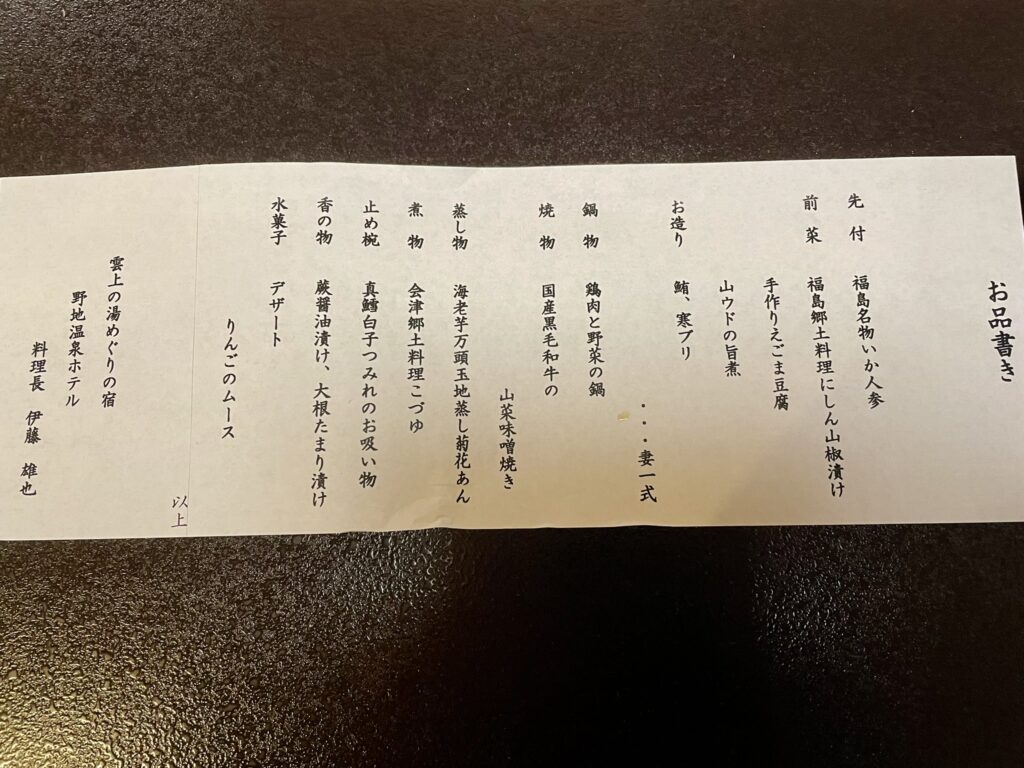 お品書き
先付　福島名物いか人参
前菜　福島郷土料理にしん山椒漬け
手作りえごま豆腐
山ウドの旨煮
お造り　鮪、寒ブリ
・・・妻一式
鍋物　鶏肉と野菜の鍋
焼物　国産黒毛和牛の
山菜味噌焼き
蒸し物　海老芋万頭玉地蒸し菊花あん
煮物　会津郷土料理こづゆ
止め椀　真鱈白子つみれのお吸い物
香の物　蕨醤油漬け、大根たまり漬け
水菓子　デザート
りんごのムース
以上
雲上の湯めぐりの宿
野地温泉ホテル
料理長　伊藤　雄也